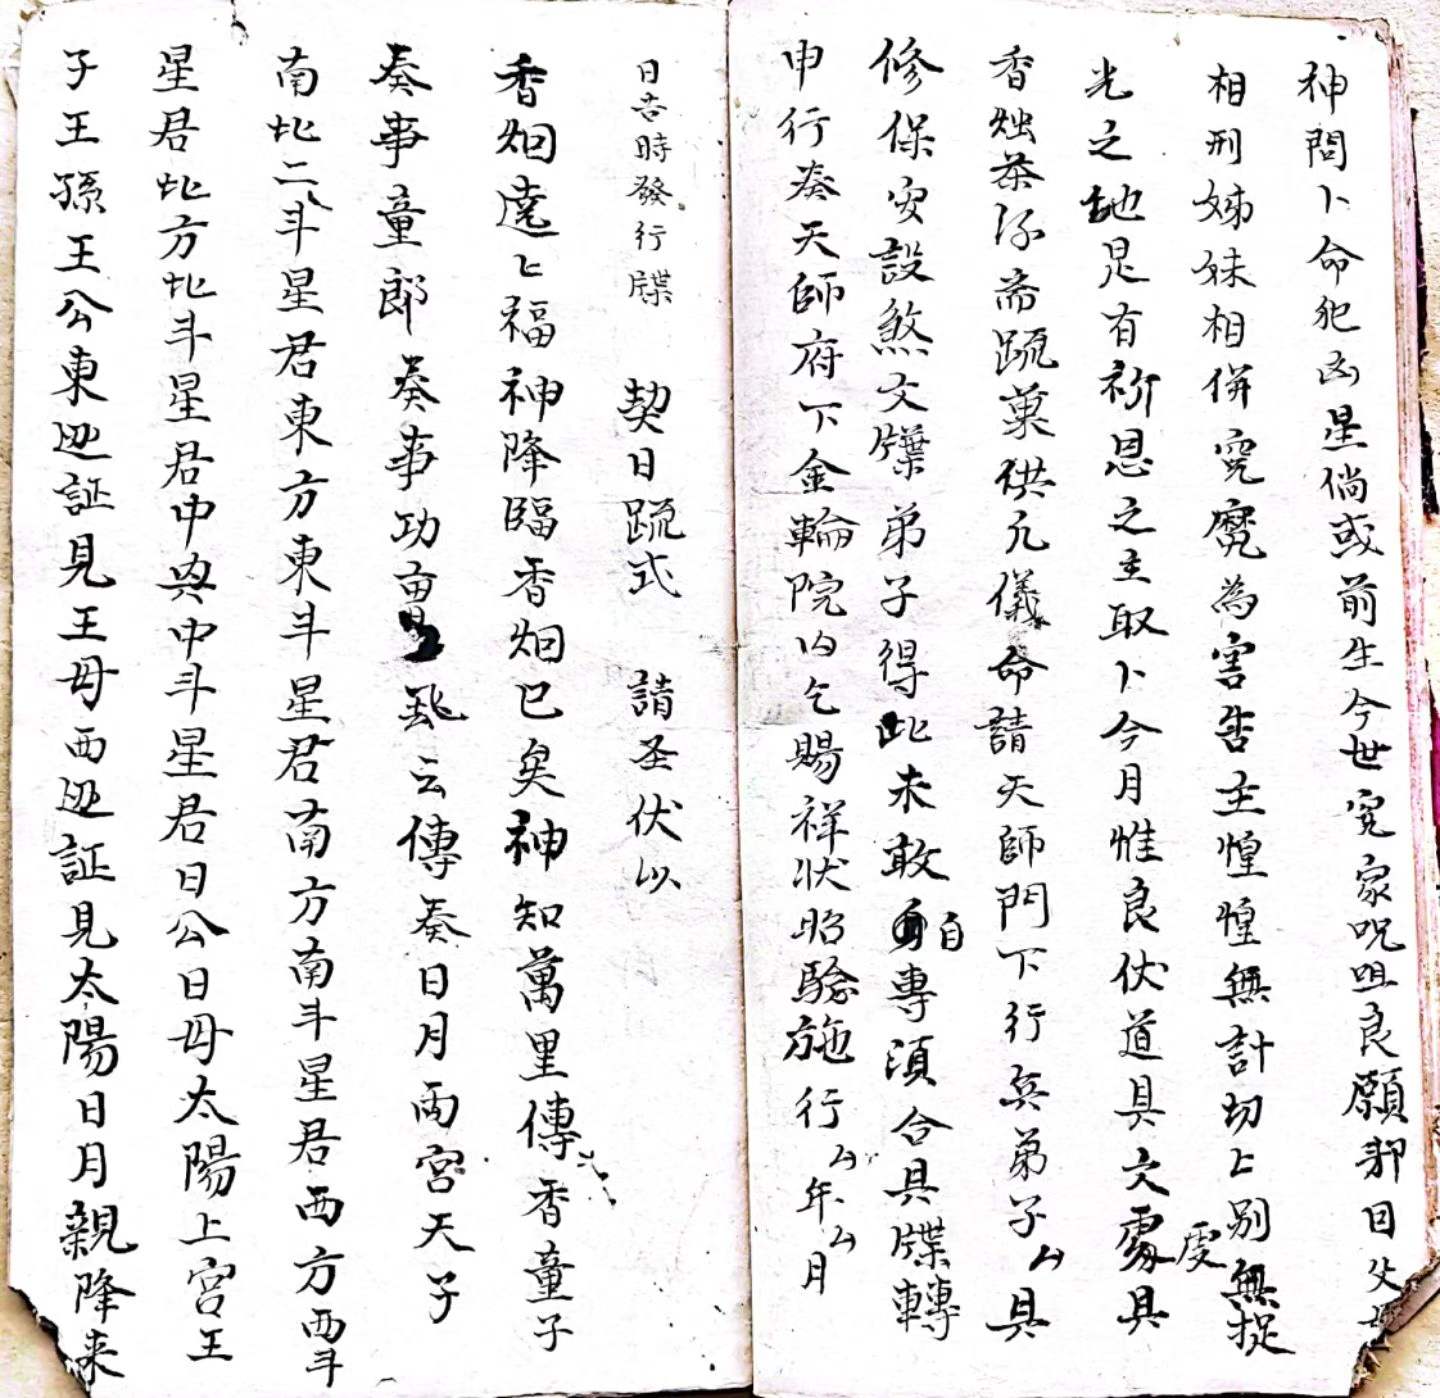 神問卜命犯凶星倘或前生今世冤家呪咀良願邪目父
相刑姊妹相併冤魔為害告主惶惶無計切上別無捉
光之地是有祈恩之主取卜今月惟良伏道具文處虔具
香烛茶斋疏菓供凡儀命請天師門下行兵弟子厶具
修保安設煞文牒弟子得此未敢自專須合具牒轉
申行奏天師府下金輪院内乞賜祥状昭驗施行厶年厶月
日吉時發行牒
契日疏式 請圣伏以
香烟遶〻福神降臨香烟已矣神知萬里傳香童子
奏事童郎奏事功曹飛云傳奏日月両宮天子
南北二斗星君東方東斗星君南方南斗星君西方西斗
星君北方北斗星君中央中斗星君日公日母太陽上宮王
子王孫王公東边証見王母西边証見太陽日月親降来